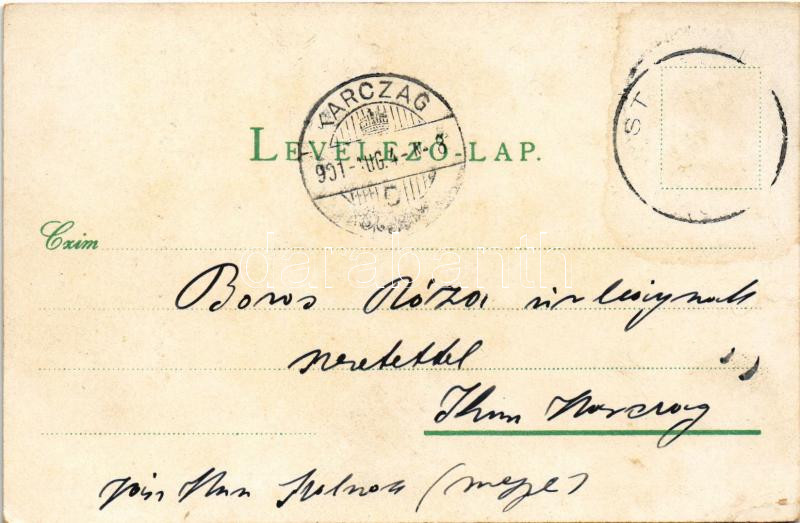 KARCZAG
LEVELEZŐ-LAP.
ST
901 AUG. 4
Czim
darabanth
Boros Róza úrleánynak
szeretettel
Kun Karczag
Jász Nkun Szolnok (megye)